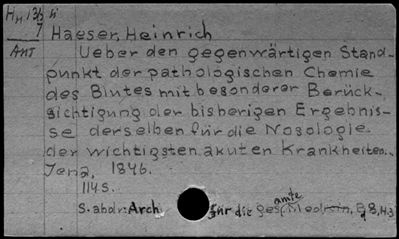 Haeser, Heinrich
Ueber den gegenwärtigen Stand-
punkt der pathologischen Chemie
des Blutes mit besonderer Berück-
sichtigung der bisherigen Ergebnis-
se derselben für die Nosologie
der wichtigsten akuten Krankheiten.
Jena, 1846.
114 S.
S. abdr: Arch für die ges. Medicin, Bd 8, H3